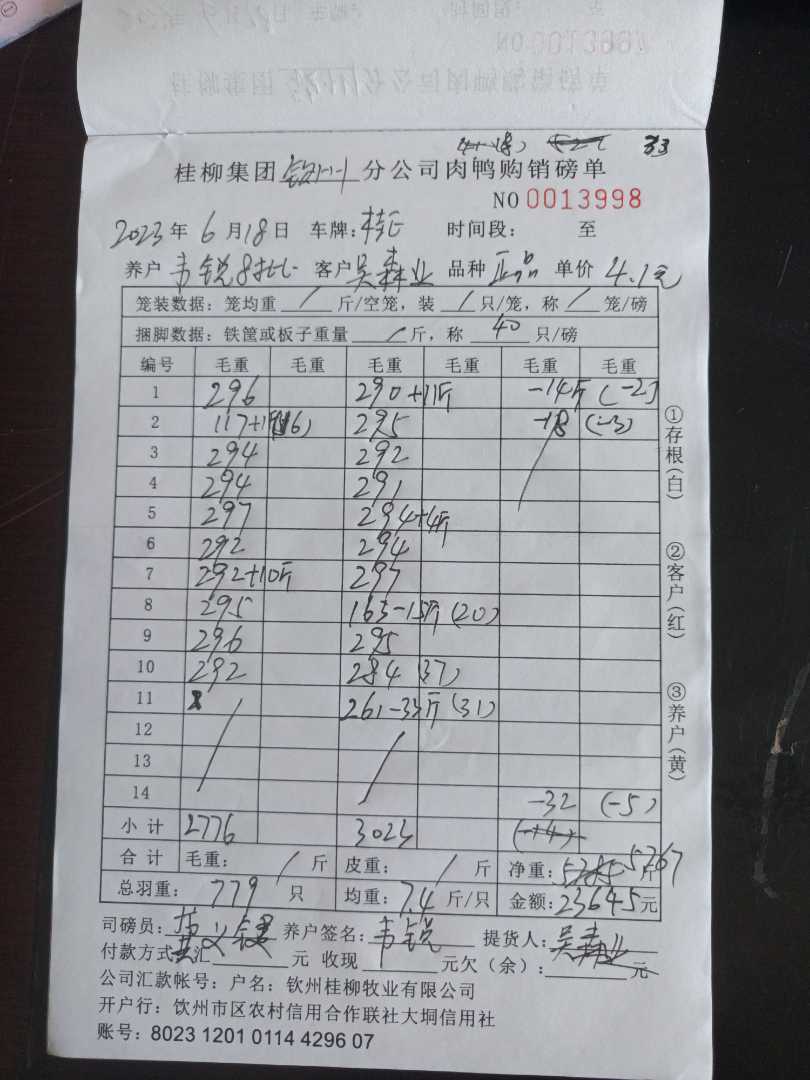 33
桂柳集团 钦州 分公司肉鸭购销磅单
NO 0013998
2023年 6月18日 车牌: 时间段: 至
养户 韦锐8批 客户 吴森业 品种 正品 单价 4.1元
笼装数据: 笼均重 / 斤/空笼, 装 / 只/笼, 称 / 笼/磅
捆脚数据: 铁筐或板子重量 / 斤, 称 40 只/磅
编号 毛重 毛重 毛重 毛重 毛重 毛重
1 296 290+11斤 -14斤 (-2)
2 117+1斤(16) 295 -18 (-3)
3 294 292
4 294 291
5 297 294+4斤
6 292 294
7 292+10斤 297
8 295 163-15斤 (20)
9 296 295
10 292 284 (37)
11 261-33斤 (31)
12
13
14 -32 (-5)
小计 2776 3023
合计 毛重: / 斤 皮重: / 斤 净重: 5767 斤
总羽重: 779 只 均重: 7.4 斤/只 金额: 23645元
司磅员: 养户签名: 韦锐 提货人: 吴森业
付款方式: 汇 元 收现 元欠(余): 元
公司汇款帐号: 户名: 钦州桂柳牧业有限公司
开户行: 饮州市区农村信用合作联社大垌信用社
账号: 8023 1201 0114 4296 07
①存根(白)
②客户(红)
③养户(黄)